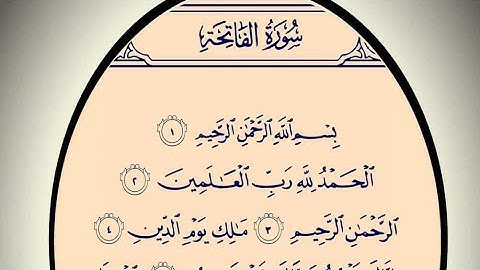 سُورَةُ الفَاتِحَةِ
بِسْمِ اللَّهِ الرَّحْمَٰنِ الرَّحِيمِ ١
الْحَمْدُ لِلَّهِ رَبِّ الْعَالَمِينَ ٢
الرَّحْمَٰنِ الرَّحِيمِ ٣ مَالِكِ يَوْمِ الدِّينِ ٤